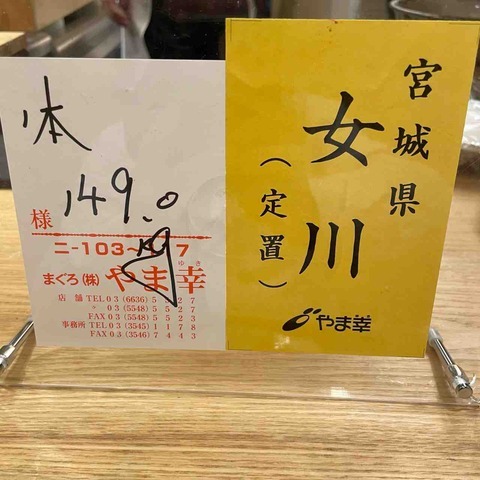 本
149.0
kg
様
ニ-103~
7
ゆき
まぐろ(株)やま幸
店 舗 TEL 03 (6636) 5 27
〃 03 (5548) 5 2 7
FAX 03 (5548) 5 5 2 3
事務所 TEL 03 (3545) 1 1 7 8
FAX 03 (3546) 7 4 4 3
宮城県
女川
(定置)
やま幸